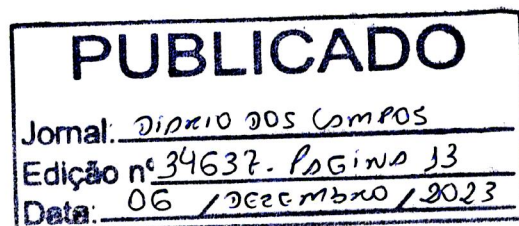 PUBLICADO
Jornal: DIARIO DOS CAMPOS
Edição nº 34637. PAGINA 13
Data: 06 / DEZEMBRO / 2023